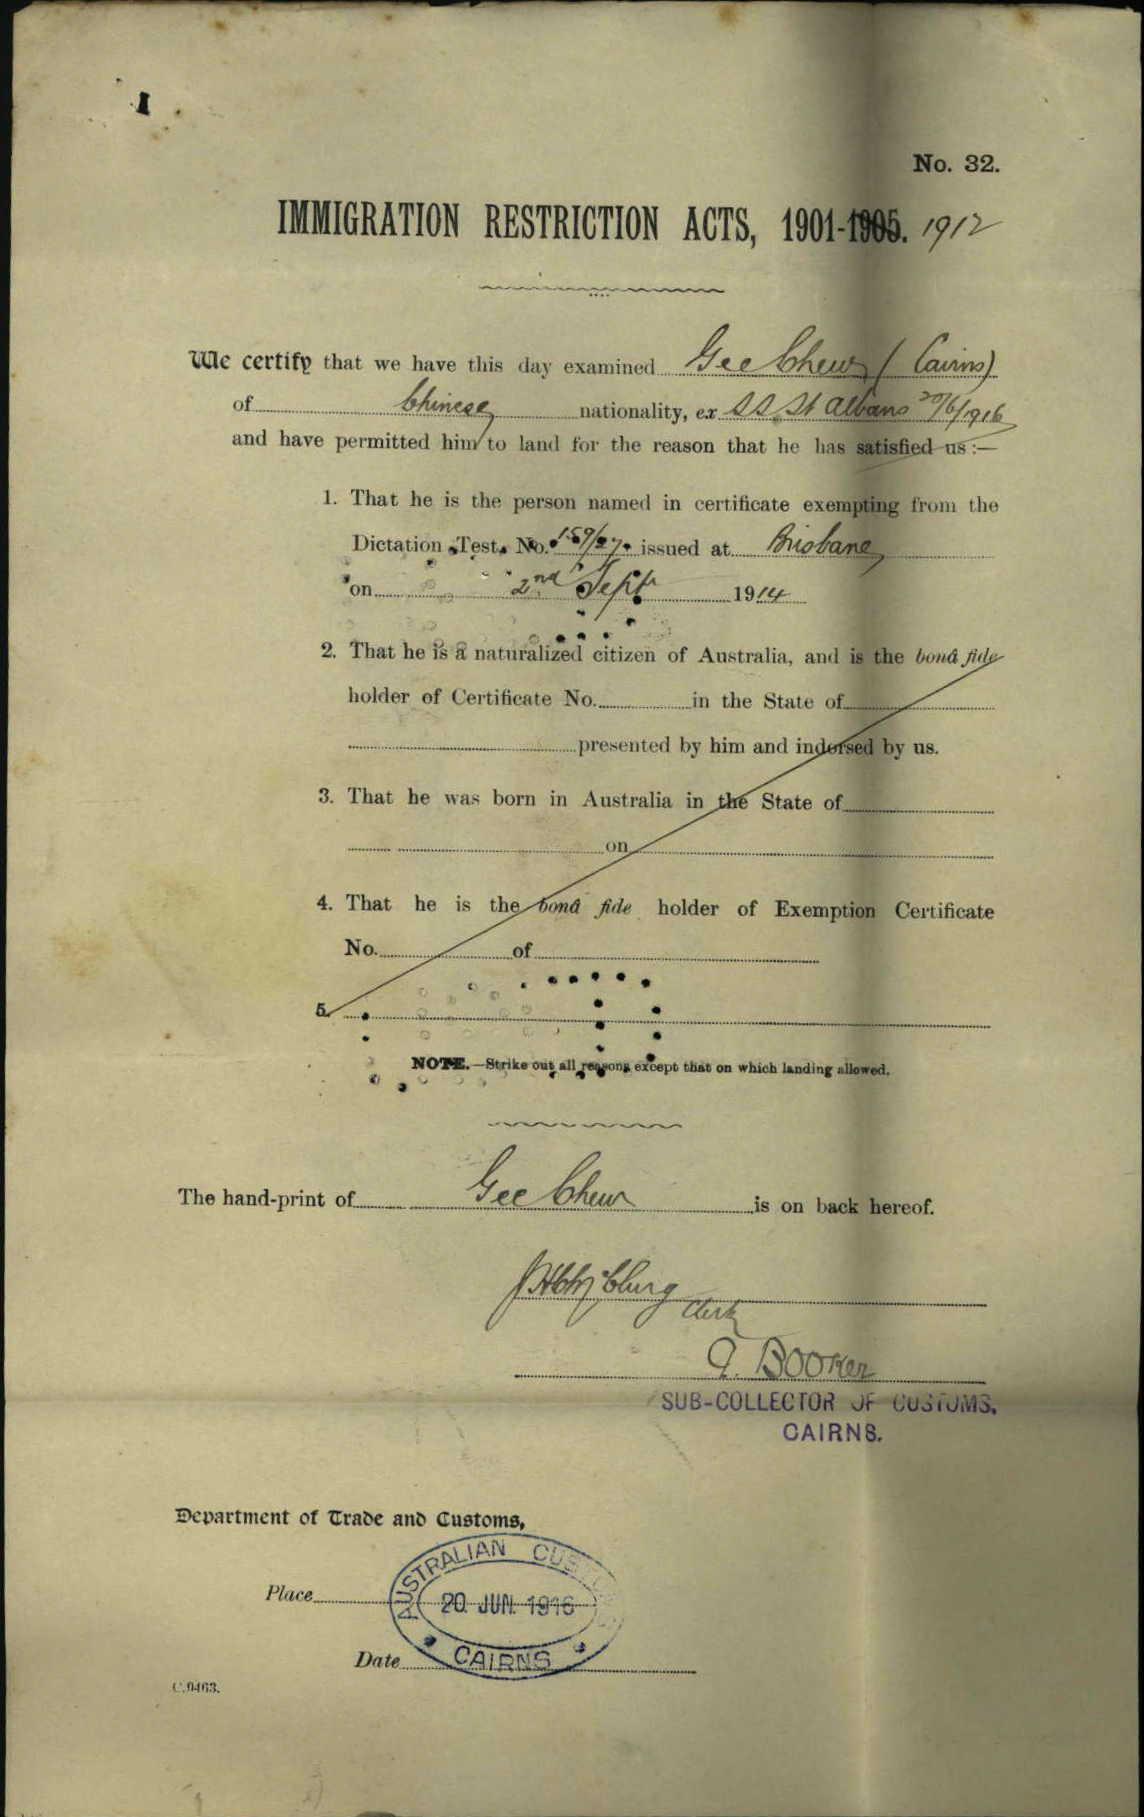 No. 32.
IMMIGRATION RESTRICTION ACTS, 1901-1905. 1912
We certify that we have this day examined Gee Chew (Cairns)
of Chinese nationality, ex SS St Albans 20/6/1916
and have permitted him to land for the reason that he has satisfied us :—
1. That he is the person named in certificate exempting from the
Dictation Test, No. issued at Brisbane
on 2nd Sept 1914
2. That he is a naturalized citizen of Australia, and is the bonâ fide
holder of Certificate No. in the State of
presented by him and indorsed by us.
3. That he was born in Australia in the State of
on
4. That he is the bonâ fide holder of Exemption Certificate
No. of
5.
NOTE.—Strike out all reasons except that on which landing allowed.
The hand-print of Gee Chew is on back hereof.
Clerk
Booker
SUB-COLLECTOR OF CUSTOMS.
CAIRNS.
Department of Trade and Customs,
AUSTRALIAN CUSTOMS
Place
20 JUN. 1916
CAIRNS
Date
C.9463.